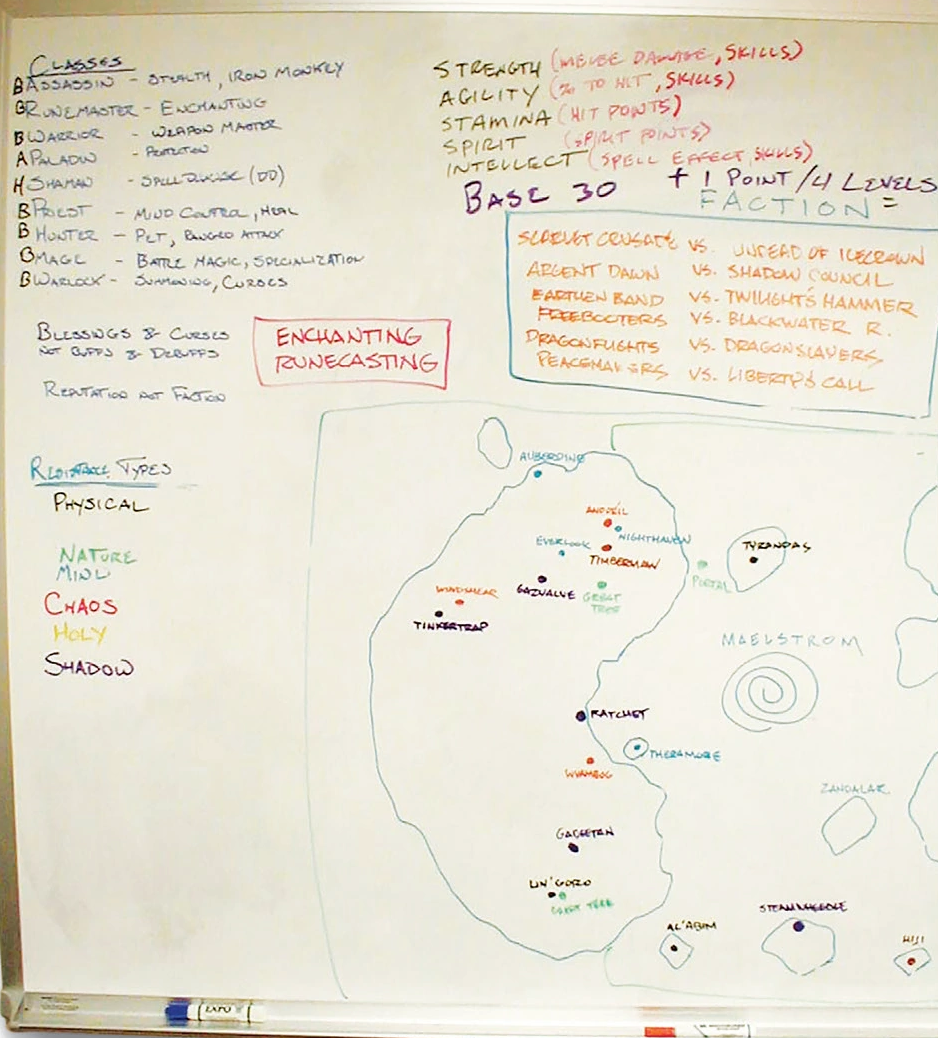 CLASSES
B ASSASSIN - STEALTH, IRON MONKEY
B RUNEMASTER - ENCHANTING
B WARRIOR - WEAPON MASTER
A PALADIN - PROTECTION
H SHAMAN - SPELL DAMAGE (DD)
B PRIEST - MIND CONTROL, HEAL
B HUNTER - PET, RANGED ATTACK
B MAGE - BATTLE MAGIC, SPECIALIZATION
B WARLOCK - SUMMONING, CURSES
BLESSINGS & CURSES
NOT BUFFS & DEBUFFS
REPUTATION NOT FACTION
ENCHANTING
RUNECASTING
STRENGTH (MELEE DAMAGE, SKILLS)
AGILITY (% TO HIT, SKILLS)
STAMINA (HIT POINTS)
SPIRIT (SPIRIT POINTS)
INTELLECT (SPELL EFFECT, SKILLS)
BASE 30 + 1 POINT/4 LEVELS
FACTION =
SCARLET CRUSADE VS. UNDEAD OF ICECROWN
ARGENT DAWN VS. SHADOW COUNCIL
EARTHEN BAND VS. TWILIGHT'S HAMMER
FREEBOOTERS VS. BLACKWATER R.
DRAGONFLIGHTS VS. DRAGONSLAYERS
PEACEMAKERS VS. LIBERTY'S CALL
RESISTANCE TYPES
PHYSICAL
NATURE
MIND
CHAOS
HOLY
SHADOW
AUBERDINE
ANDORIL
NIGHTHAVEN
EVERLOOK
TIMBERMAW
TYRANDAS
PORTAL
GREAT
TREE
WINDSHEAR
TINKERTRAP
MAELSTROM
RATCHET
THERAMORE
ZANDALAR
GADGETAN
UN'GORO
GREAT TREE
AL'ABIM
STEAMWHEEDLE
HIJI
EXPO